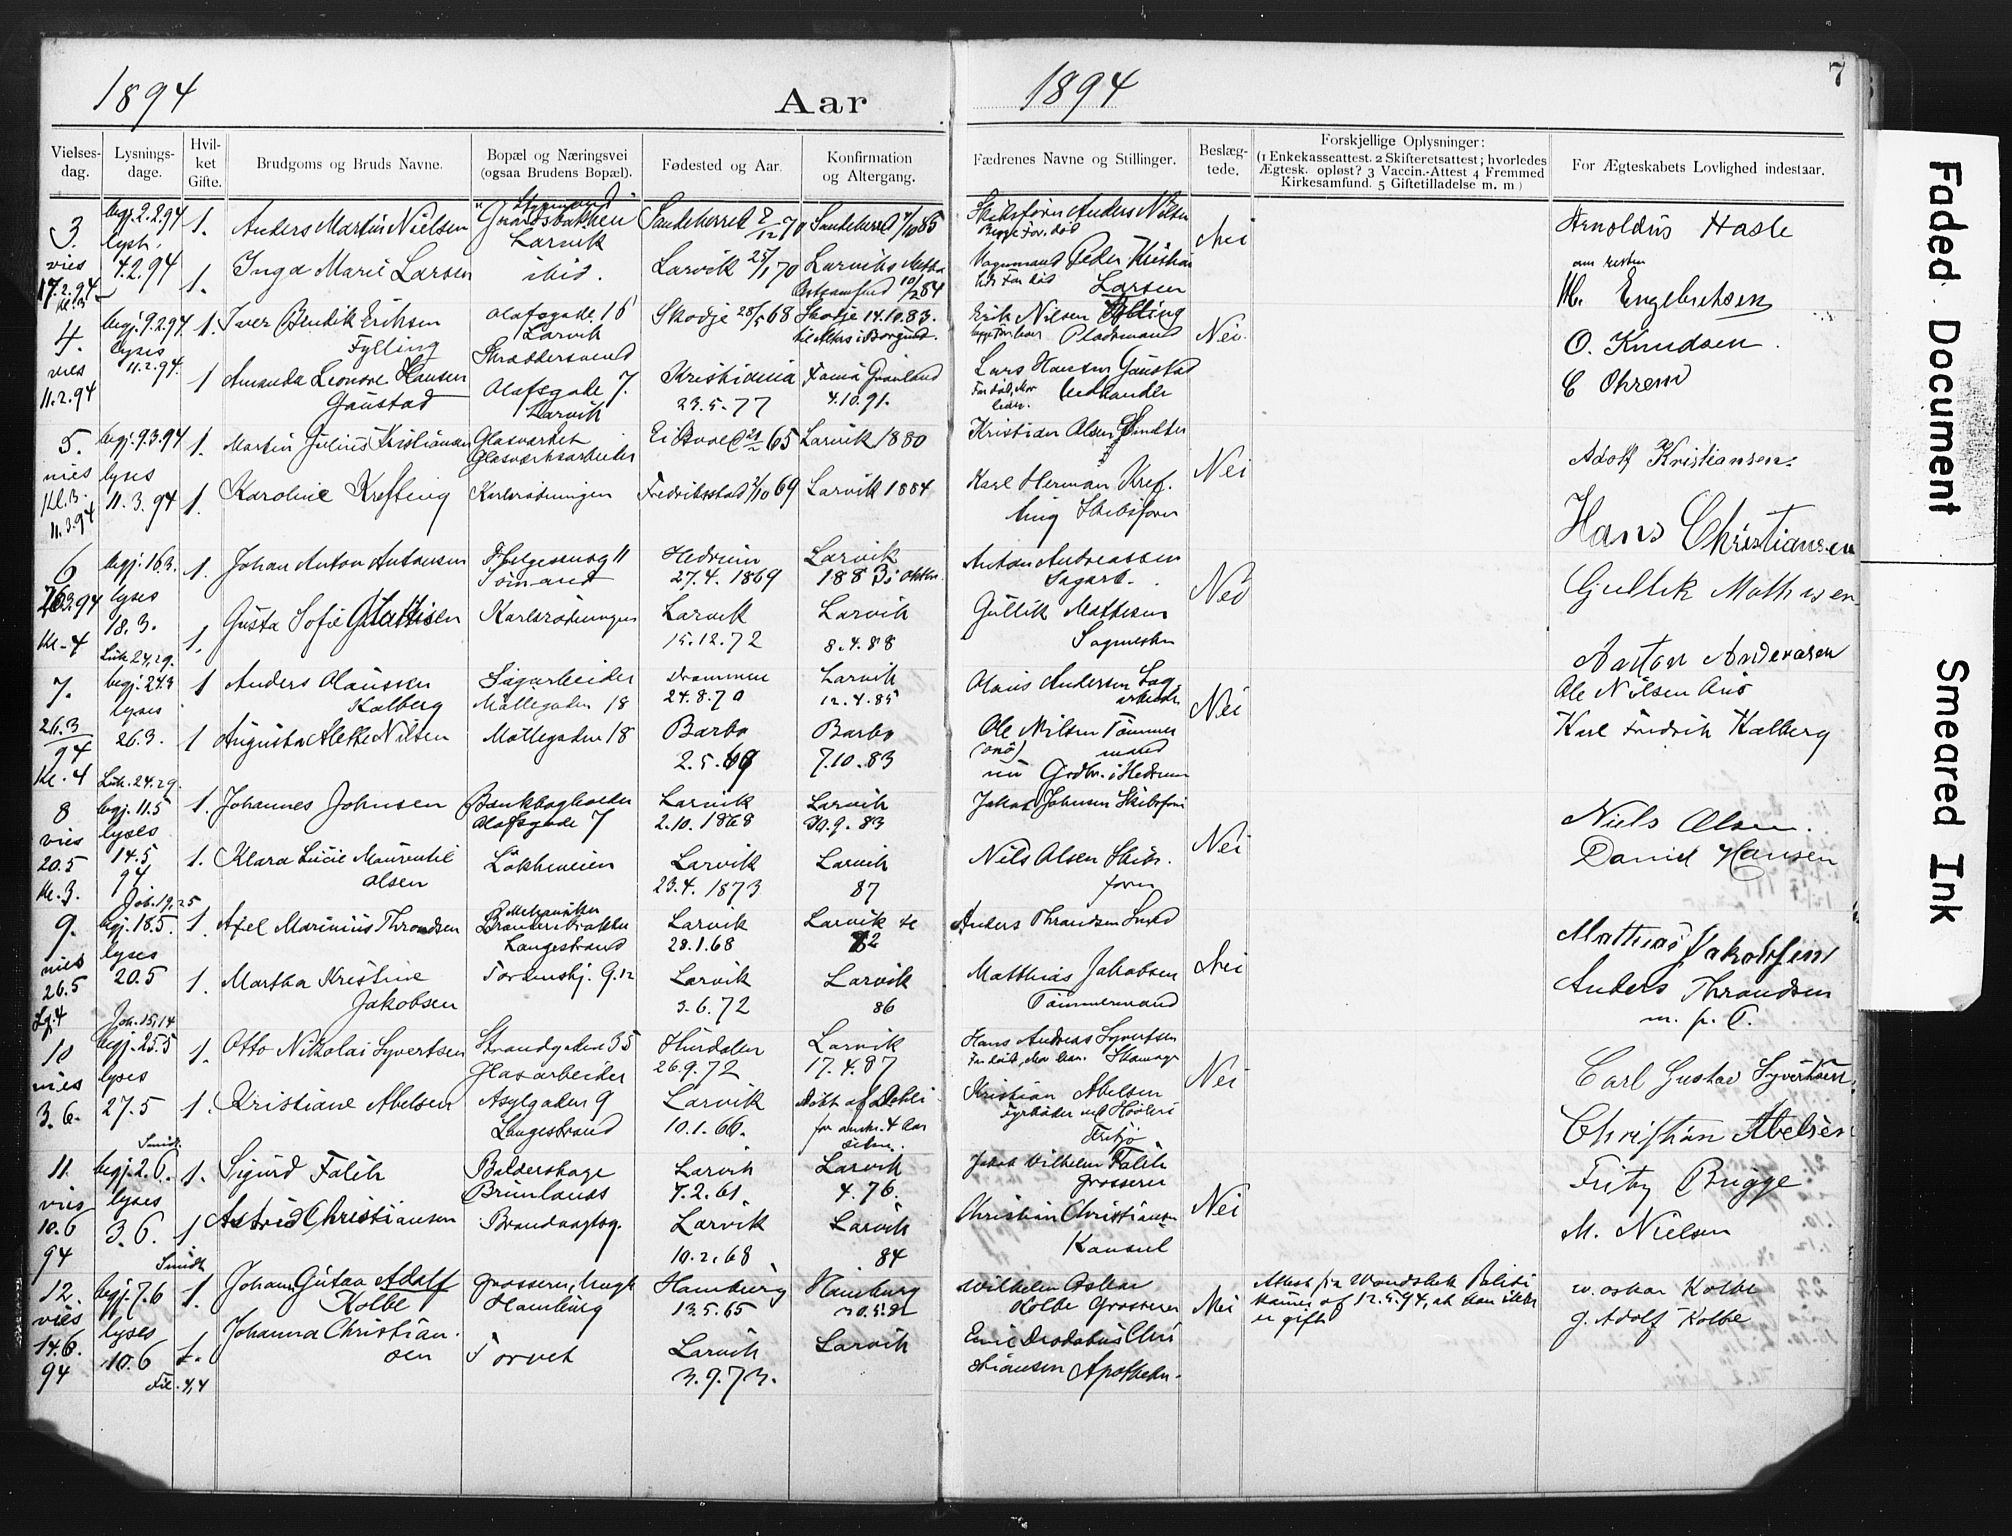 1894
Aar
1894
7
Vielses-dag.
Lysnings-dage.
Hvil-ket Gifte.
Brudgoms og Bruds Navne.
Bopæl og Næringsvei
(ogsaa Brudens Bopæl).
Fødested og Aar.
Konfirmation
og Altergang.
Fædrenes Navne og Stillinger.
Beslæg-tede.
Forskjellige Oplysninger:
(1 Enkekasseattest. 2 Skifteretsattest; hvorledes
Ægtesk. opløst? 3 Vaccin.-Attest 4 Fremmed
Kirkesamfund. 5 Giftetilladelse m. m )
For Ægteskabets Lovlighed indestaar.
3. begj. 2.2.94 1. Anders Martin Nielsen Larvik Sandeherred Sandeherred Anders Nilsen Nei Arnoldus Hasle
vies 17.2.94 4.2.94 1. Inga Marie Larsen ibid. Larvik 25/1 70 Larviks Peder Kristian Larsen M. Engebretsen
4. begj. 9.2.94 1. Iver Bendik Eriksen Fylling Olafsgade 16 Larvik Skræddersvend Skodje 28/5 68 Skodje 14.10.83. Erik Nilsen Fylling Pladsmand Nei. O. Knudsen.
vies 11.2.94 lyses 11.2.94. 1 Amanda Leonore Hansen Gaustad Olafsgade 7. Larvik Kristiania 23.5.77 Grønland 4.10.91. Lars Hansen Gaustad C Ohrem
5. begj. 9.3.94 1. Martin Julius Kristiansen Glasværket Glasværksarbeider Eidsvold 65 Larvik 1880 Kristian Olsen Smelter Nei Adolf Kristiansen.
vies Kl. 3. 11.3.94 lyses 11.3.94 1. Karoline Krefting Karlsrødningen Fredriksstad 69 Larvik 1884 Karl Herman Kref-
ting Skibsfører Hans Christiansen
6 begj. 16.3. 1. Johan Anton Antonsen Tømand Hedrum 27.4.1869 Larvik 1883 Anton Andreassen Sagarb. Nei Gullik Mathisen
26.3.94 Kl. 4 lyses 18.3. Luk. 24,29. 1. Gusta Sofie Mathisen Karlsrødningen Larvik 15.12.72 Larvik 8.4.88 Gullik Mathisen Sagmester Anton Andreasen
7. begj. 24.3 lyses 1 Anders Olaussen Kalberg Sagarbeider Møllegaden 18 Drammen 24.8.70 Larvik 12.4.85 Olaus Andersen Sagarbeider Nei Ole Nilsen Anø
26.3/94 Kl. 4 26.3. Luk. 24.29. 1 Augusta Alette Nilsen Møllegaden 18 Barbo 2.5.69 Barbo 7.10.83 Ole Nilsen Tømmermand (Anø) nu Grdbr. i Hedrum Karl Fredrik Kalberg
8 begj. 11.5 1. Johannes Johnsen Bankbogholder Olafsgade 7 Larvik 2.10.1868 Larvik 30.9.83 Jakob Johnsen Skibsfører Nei Niels Olsen.
vies 20.5 Kl. 3. lyses 14.5 94 1. Klara Lucie Maurentil Olsen Løkkeveien Larvik 23.4.1873 Larvik 87 Nils Olsen Skibs-
fører Daniel Hansen
9. begj. 18.5. 1. Axel Marinius Throndsen Langestrand Larvik 28.1.68 Larvik 82 Anders Thrandsen Smed Nei Mathias Jakobsen
vies 26.5 lyses 20.5 Joh. 15,14 1. Martha Kristine Jakobsen Larvik 3.6.72 Larvik 86 Matthias Jakobsen Tømmermand Anders Throndsen m. p. P.
10 begj. 25.5 1. Otto Nikolai Syvertsen Strandgaden 55 Glasarbeider Hurdalen 26.9.72 Larvik 17.4.87 Hans Andreas Syvertsen Nei Carl Gustav Syvertsen
vies 3.6. lyses 27.5 1. Kristiane Abelsen Asylgaden 9 Langestrand Larvik 10.1.66. Kristian Abelsen Fyrbøder Christian Abelsen
11. begj. 2.6. 1. Sigurd Falck Baldershage Brunlanæs Larvik 7.2.61. Larvik 4.76. Jakob Wilhelm Falck Grosserer Nei Fritz Brigge
vies 10.6 94 lyses 3.6. 1 Astrid Christiansen Larvik 10.2.68 Larvik 84 Christian Christiansen Konsul M. Nielsen
12. begj. 7.6 1. Johann Gustav Adolf Kolbe Grosserer, Hamburg Hamburg 13.5.65 Hamburg Wilhelm Oskar Kolbe Grosserer Nei Attest fra Wandsbek Politikammer af 12.5.94, at han ikke er gift W. Oskar Kolbe
vies 14.6. 94 lyses 10.6 Fil. 4,4 1. Johanna Christian-
sen Torvet Larvik 3.9.73. Larvik Chri-
stiansen Apotheker. G. Adolf Kolbe
Faded Document
Smeared Ink